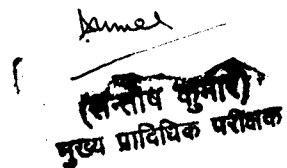 (सन्तोष कुमार)
मुख्य प्राविधिक परीक्षक